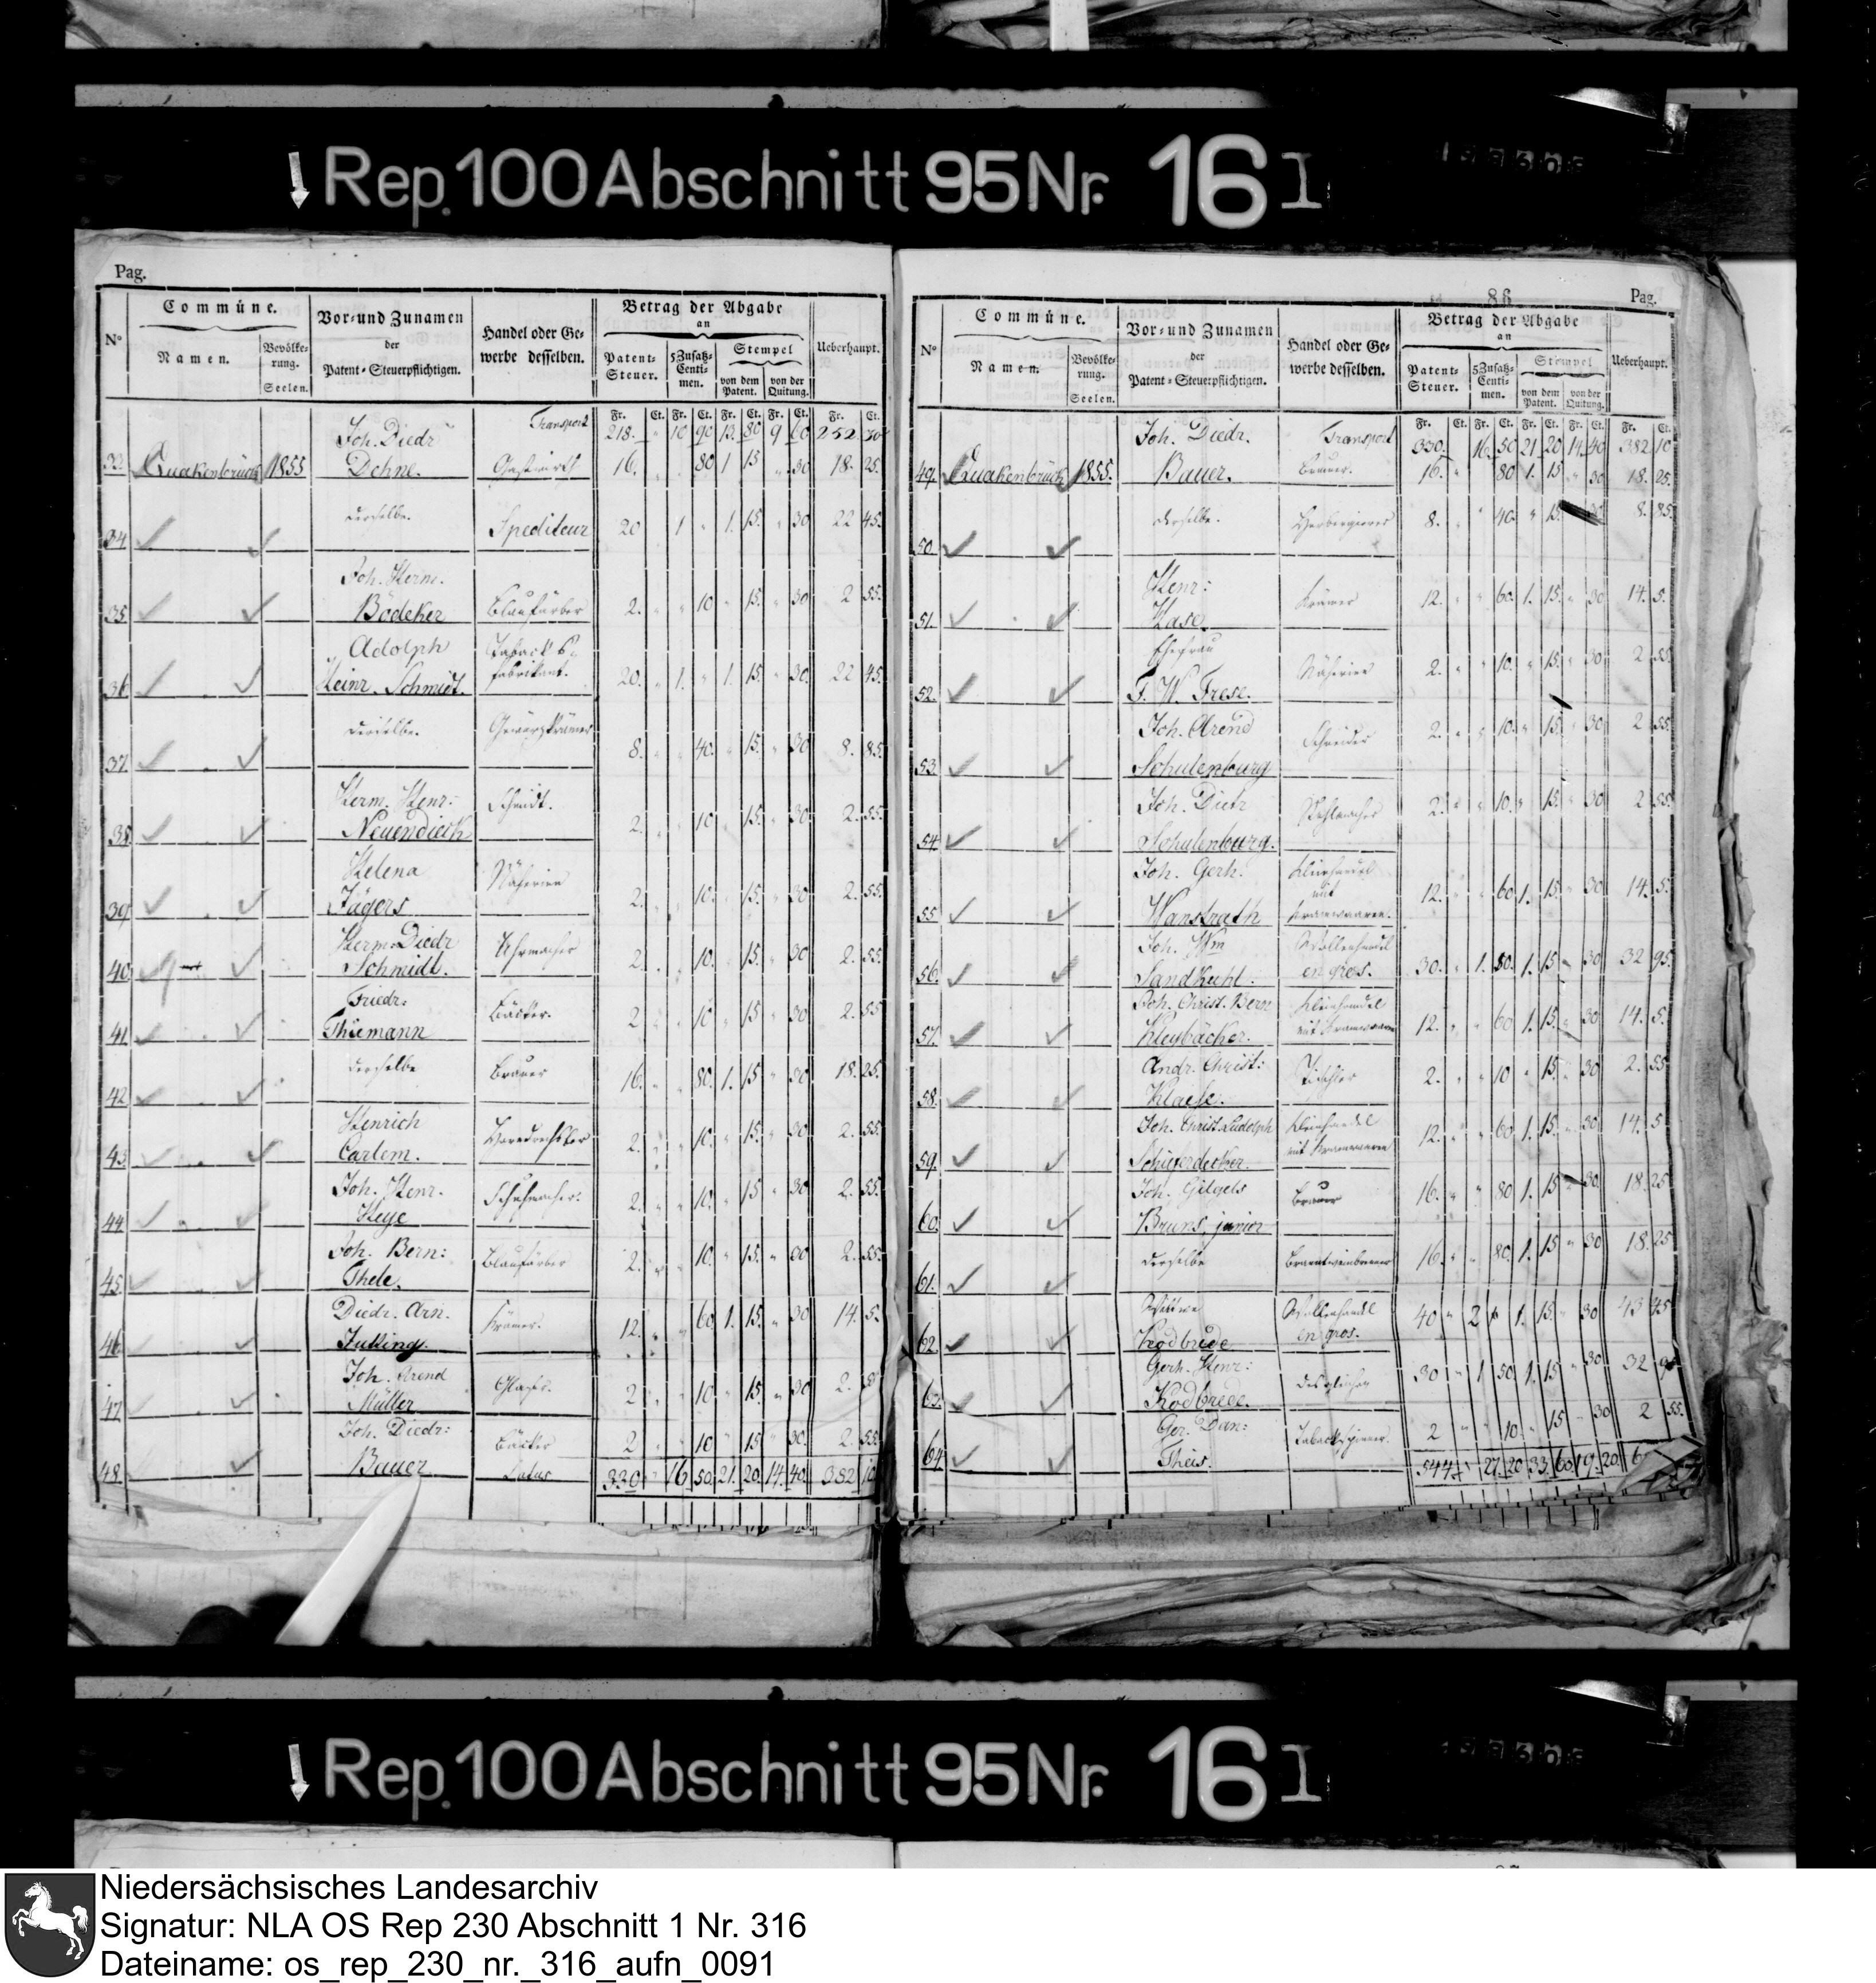 Rep. 100 Abschnitt 95 Nr. 16 I
Pag.
Commüne.
Vor- und Zunamen
der
Patent-Steuerpflichtigen.
Handel oder Ge-
werbe desselben.
Betrag der Abgabe
an
Ueberhaupt.
N°
Namen.
Bevölke-
rung.
Seelen.
Patent-
Steuer.
5 Zusatz-
Centi-
men.
Stempel
von dem
Patent.
von der
Quitung.
Fr. Ct. Fr. Ct. Fr. Ct. Fr. Ct. Fr. Ct.
Transport 218. " 10 90 13. 80 9 60 252 30
33. Quakenbrück 1855 Joh. Diedr Dehne. Gastwirth 16. 80 1 15 " 30 18. 25.
34. derselbe. Spediteur 20 1 " 1. 15. " 30 22 45.
35. Joh. Herm. Bödeker Blaufärber 2. " " 10 " 15. " 30 2 55.
36. Adolph Heinr. Schmidt. Taback's fabrikant. 20. " 1. " 1. 15. " 30. 22 45.
37. derselbe. Gewürzkrämer 8. " " 40. " 15. " 30 8. 85.
38. Herm. Henr: Neuendieck Schmidt. 2. " " 10 " 15. " 30 2. 55.
39. Helena Jägers Näherinn 2. " " 10. " 15. " 30 2. 55.
40. Herm: Diedr Schmidt. Uhrmacher 2. " " 10. " 15. " 30 2. 55.
41. Friedr: Thiemann Bäcker. 2 " " 10 " 15 " 30 2. 55
42. derselbe Brauer 16. " " 80. 1. 15 " 30 18. 25.
43. Henrich Carlem. 2. " " 10. " 15. " 30 2. 55.
44. Joh. Henr. Heye Schuhmacher. 2. " " 10. " 15 " 30 2. 55.
45. Joh. Bern: Thele. Blaufärber 2. " " 10. " 15. " 30 2. 55.
46. Diedr. Arn. Krämer. 12. " " 60 1. 15. " 30 14. 5.
47. Joh. Arend Müller Glaser. 2 " " 10 " 15. " 30 2.
48. Joh. Diedr: Bauer Bäcker 2 " " 10 " 15 " 30. 2. 55.
Latus 330 " 16. 50. 21. 20. 14. 40. 382 10
86
Pag.
Commüne.
Vor- und Zunamen
der
Patent-Steuerpflichtigen.
Handel oder Ge-
werbe desselben.
Betrag der Abgabe
an
Ueberhaupt.
N°
Namen.
Bevölke-
rung.
Seelen.
Patent-
Steuer.
5 Zusatz-
Centi-
men.
Stempel
von dem
Patent.
von der
Quitung.
Fr. Ct. Fr. Ct. Fr. Ct. Fr. Ct. Fr. Ct.
Transport 330. 16. 50 21 20 14. 40 382 10
49. Quakenbrück 1855. Joh. Diedr. Bauer. Brauer. 16. " 80 1. 15 " 30 18. 25.
50. derselbe. 8. " " 40. " 15. 8. 85.
51. Henr: Hase. Krämer 12. " " 60. 1. 15. " 30 14. 5.
52. Ehefrau F. W. Frese. Näherinn 2. " " 10. " 15. " 30 2 55.
53. Joh. Arend Schulenburg Schneider 2. " " 10. " 15. " 30 2 55.
54. Joh. Dietr Schulenburg. 2. " " 10. " 15. " 30 2 55.
55 Joh. Gerh. Wanstrath Kleinhandel mit Kramwaaren. 12. " " 60 1. 15. " 30 14. 5.
56. Joh. Wm Sandkuhl. Wollenhandel en gros. 30. " 1. 50. 1. 15. " 30 32 95.
57. Joh. Christ. Bern Kleybäcker. Kleinhandel mit Kramwaaren 12. " " 60 1. 15. " 30 14. 5.
58. Andr. Christ: Tischler 2. " " 10 " 15. " 30 2. 55.
59. Joh. Christ. Ludolph Schieferdecker. Kleinhandel mit Kramwaaren 12. " " 60 1. 15. " 30 14. 5
60. Joh. Gilgels Bruns, junior Brauer 16. " " 80 1. 15 " 30. 18. 25
61. derselbe Branntweinbrenner 16. " " 80. 1. 15 " 30 18. 25
62. Wittwe Kodbrede Wollenhandel en gros. 40 " 2 " 1. 15. " 30 43 45
63. Gerh. Henr: Kodbrede. desgleichen 30 " 1 50. 1. 15 " 30 32 95
64. Ger. Dan: Theis. Tabackspinner. 2 " " 10. " 15 " 30 2 55.
544. " 27. 20 33. 60. 19. 20.
Rep. 100 Abschnitt 95 Nr. 16 I
Niedersächsisches Landesarchiv
Signatur: NLA OS Rep 230 Abschnitt 1 Nr. 316
Dateiname: os_rep_230_nr._316_aufn_0091